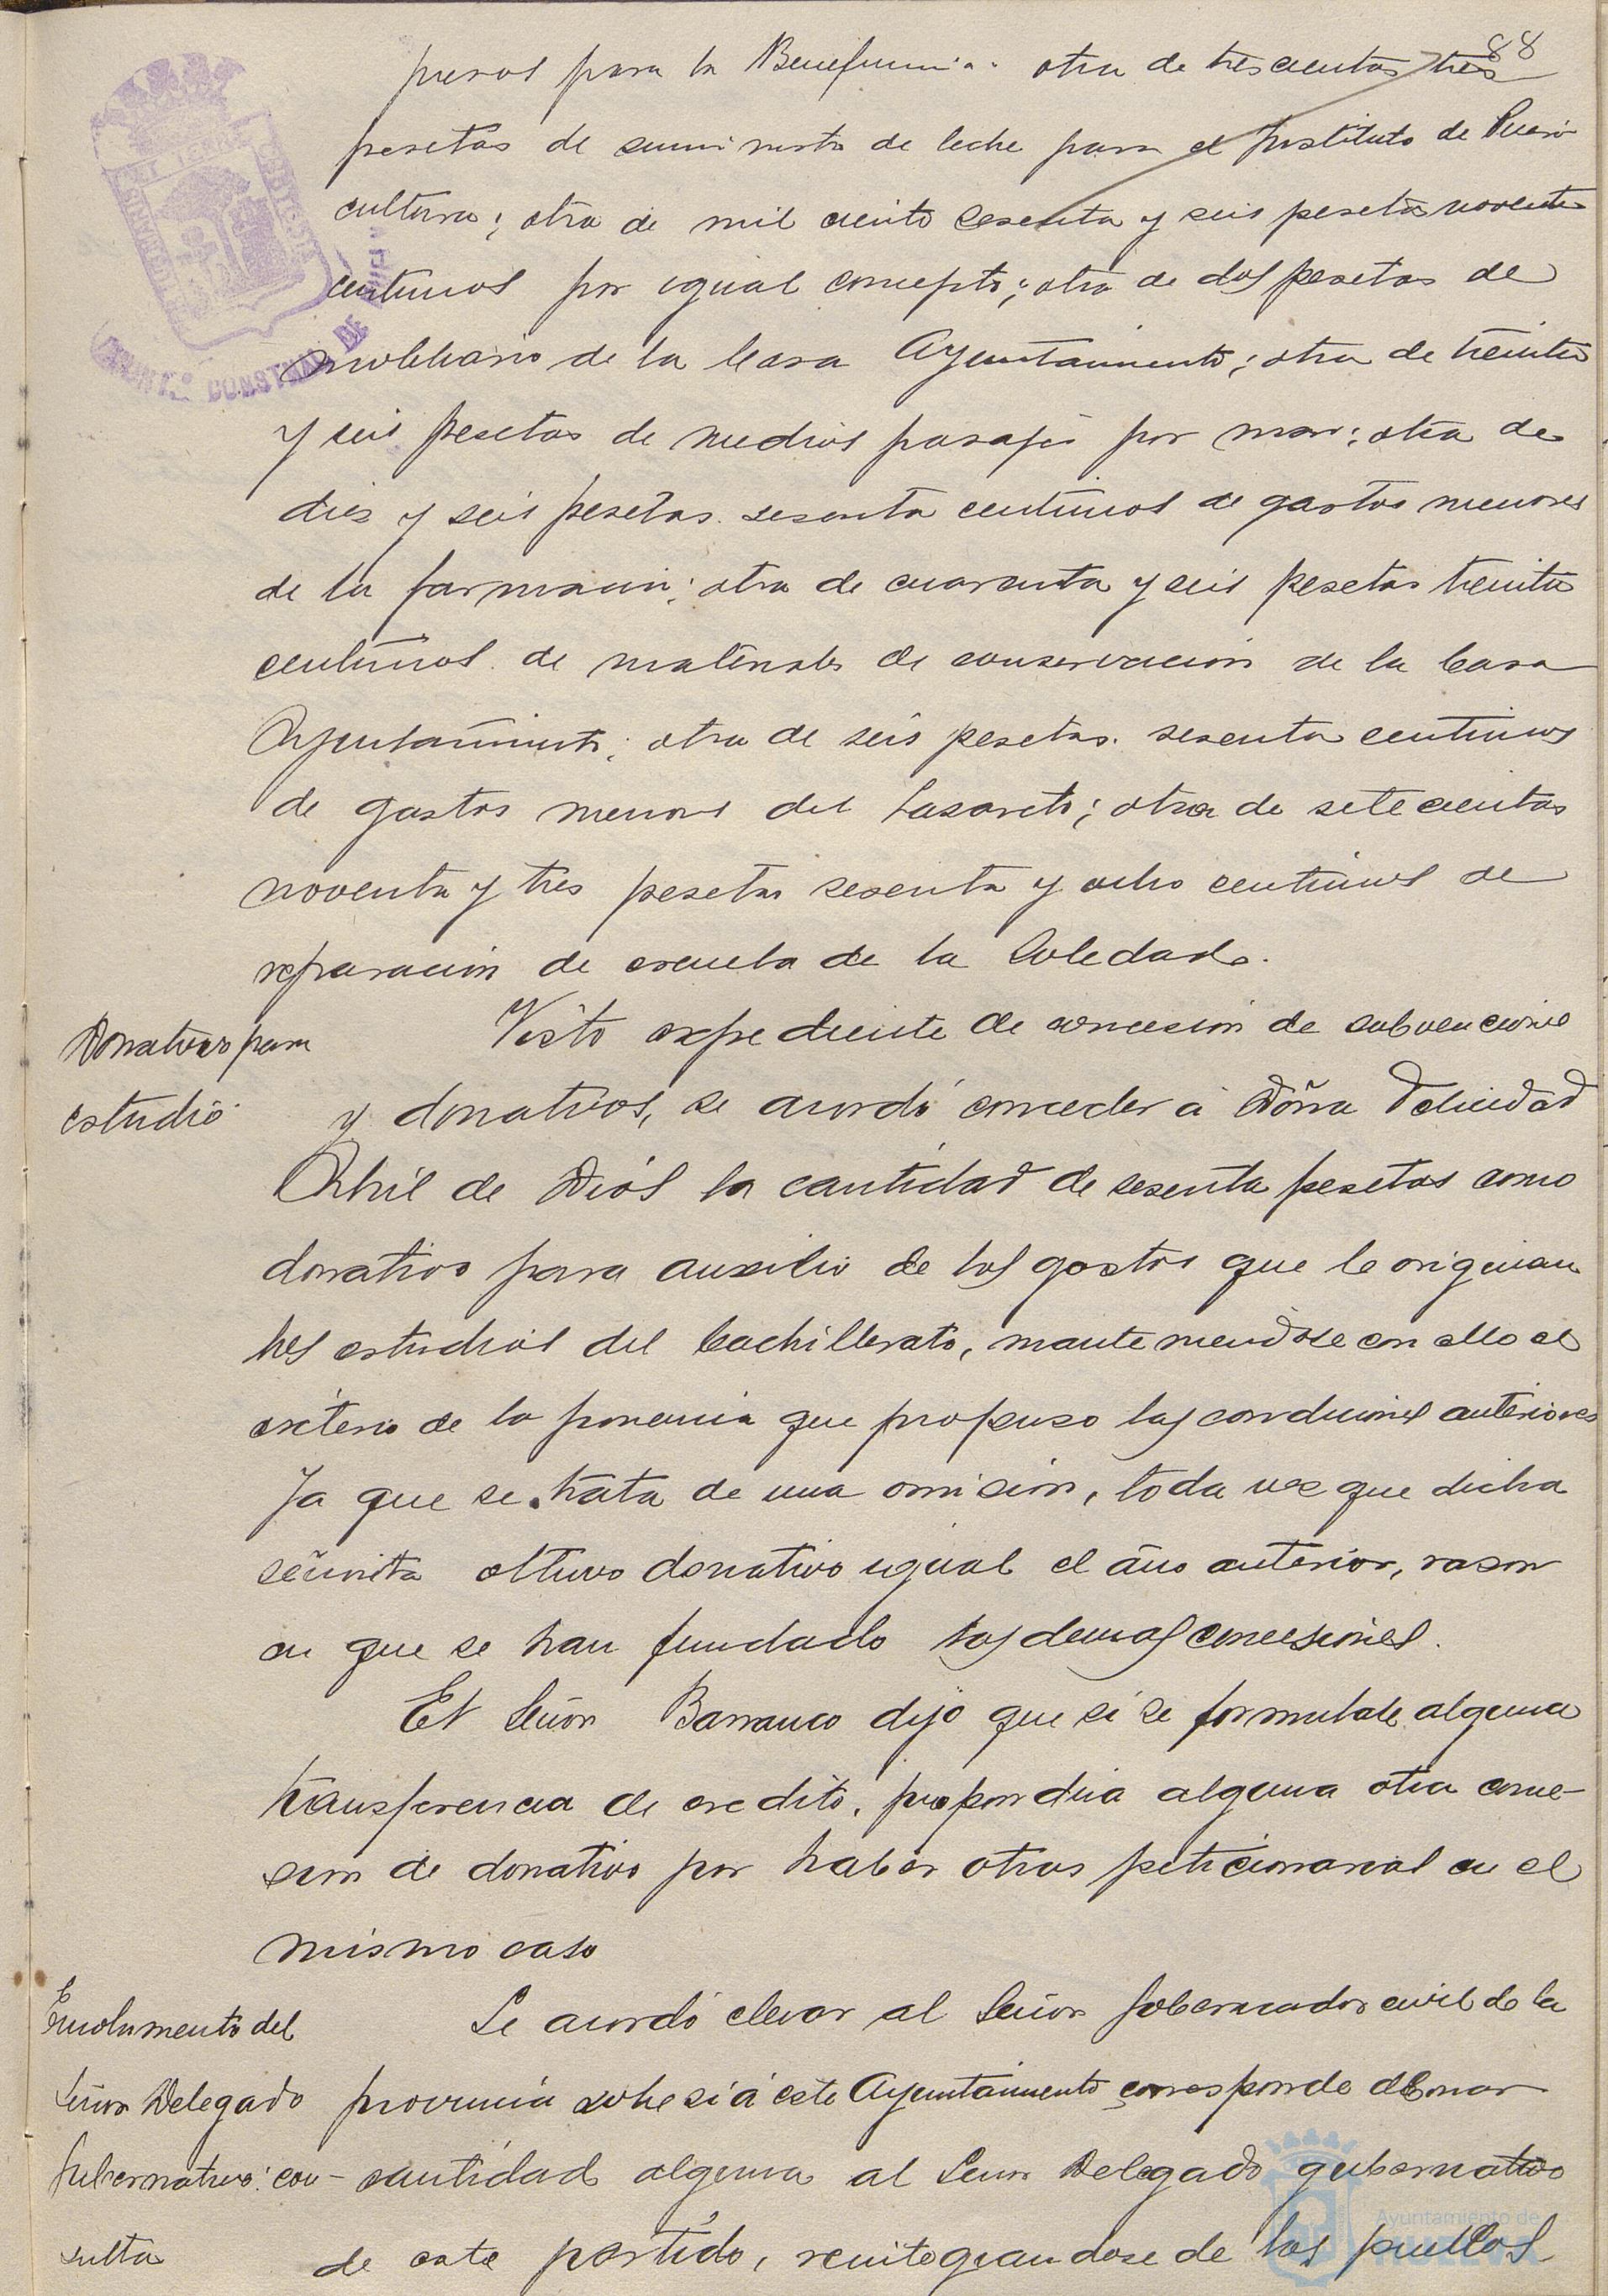 88
presos para la Beneficencia: otra de trescientas tres
pesetas de suministro de leche para el Instituto de Pueri
cultura; otra de mil ciento sesenta y seis pesetas noventa
centimos por igual concepto; otra de dos pesetas de
mobiliario de la Casa Ayuntamiento; otra de treinta
y seis pesetas de medios pasajes por mar; otra de
diez y seis pesetas sesenta centimos de gastos menores
de la farmacia; otra de cuarenta y seis pesetas treinta
centimos de materiales de conservacion de la Casa
Ayuntamiento; otra de seis pesetas sesenta centimos
de gastos menores del Lazareto; otra de setecientas
noventa y tres pesetas sesenta y ocho centimos de
reparacion de escuela de la Soledad.
Donativo para
estudio
Visto expediente de concesion de subvenciones
y donativos, se acordó conceder á Doña Felicidad
Abril de Dios la cantidad de sesenta pesetas como
donativo para auxilio de los gastos que le originan
los estudios del bachillerato, manteniendose con ello el
criterio de la ponencia que propuso las condiciones anteriores
ya que se trata de una omision, toda vez que dicha
señorita obtuvo donativo igual el año anterior, razon
en que se han fundado las demas concesiones.
El Señor Barranco dijo que si se formulase alguna
transferencia de credito, propondria alguna otra conce-
sion de donativo por haber otros peticionarios en el
mismo caso
Emolumento del
Señor Delegado
Gubernativo: con-
sulta
Se acordó elevar al Señor Gobernador civil de la
provincia sobre si á este Ayuntamiento corresponde abonar
cantidad alguna al Señor Delegado gubernativo
de este partido, reintegrandose de los pueblos
Ayuntamiento de
HUELVA